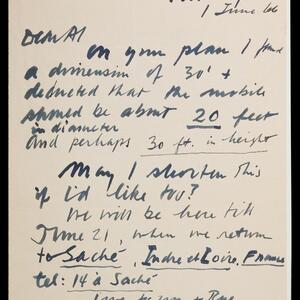 1 June 66
Dear Al
On your plan I found
a dimension of 30' +
deducted that the mobile
should be about 20 feet
in diameter
And perhaps 30 ft. in height
May I shorten this
if I'd like too?
We will be here till
June 21, when we return
to Saché, Indre et Loire, France
tel: 14 à Saché